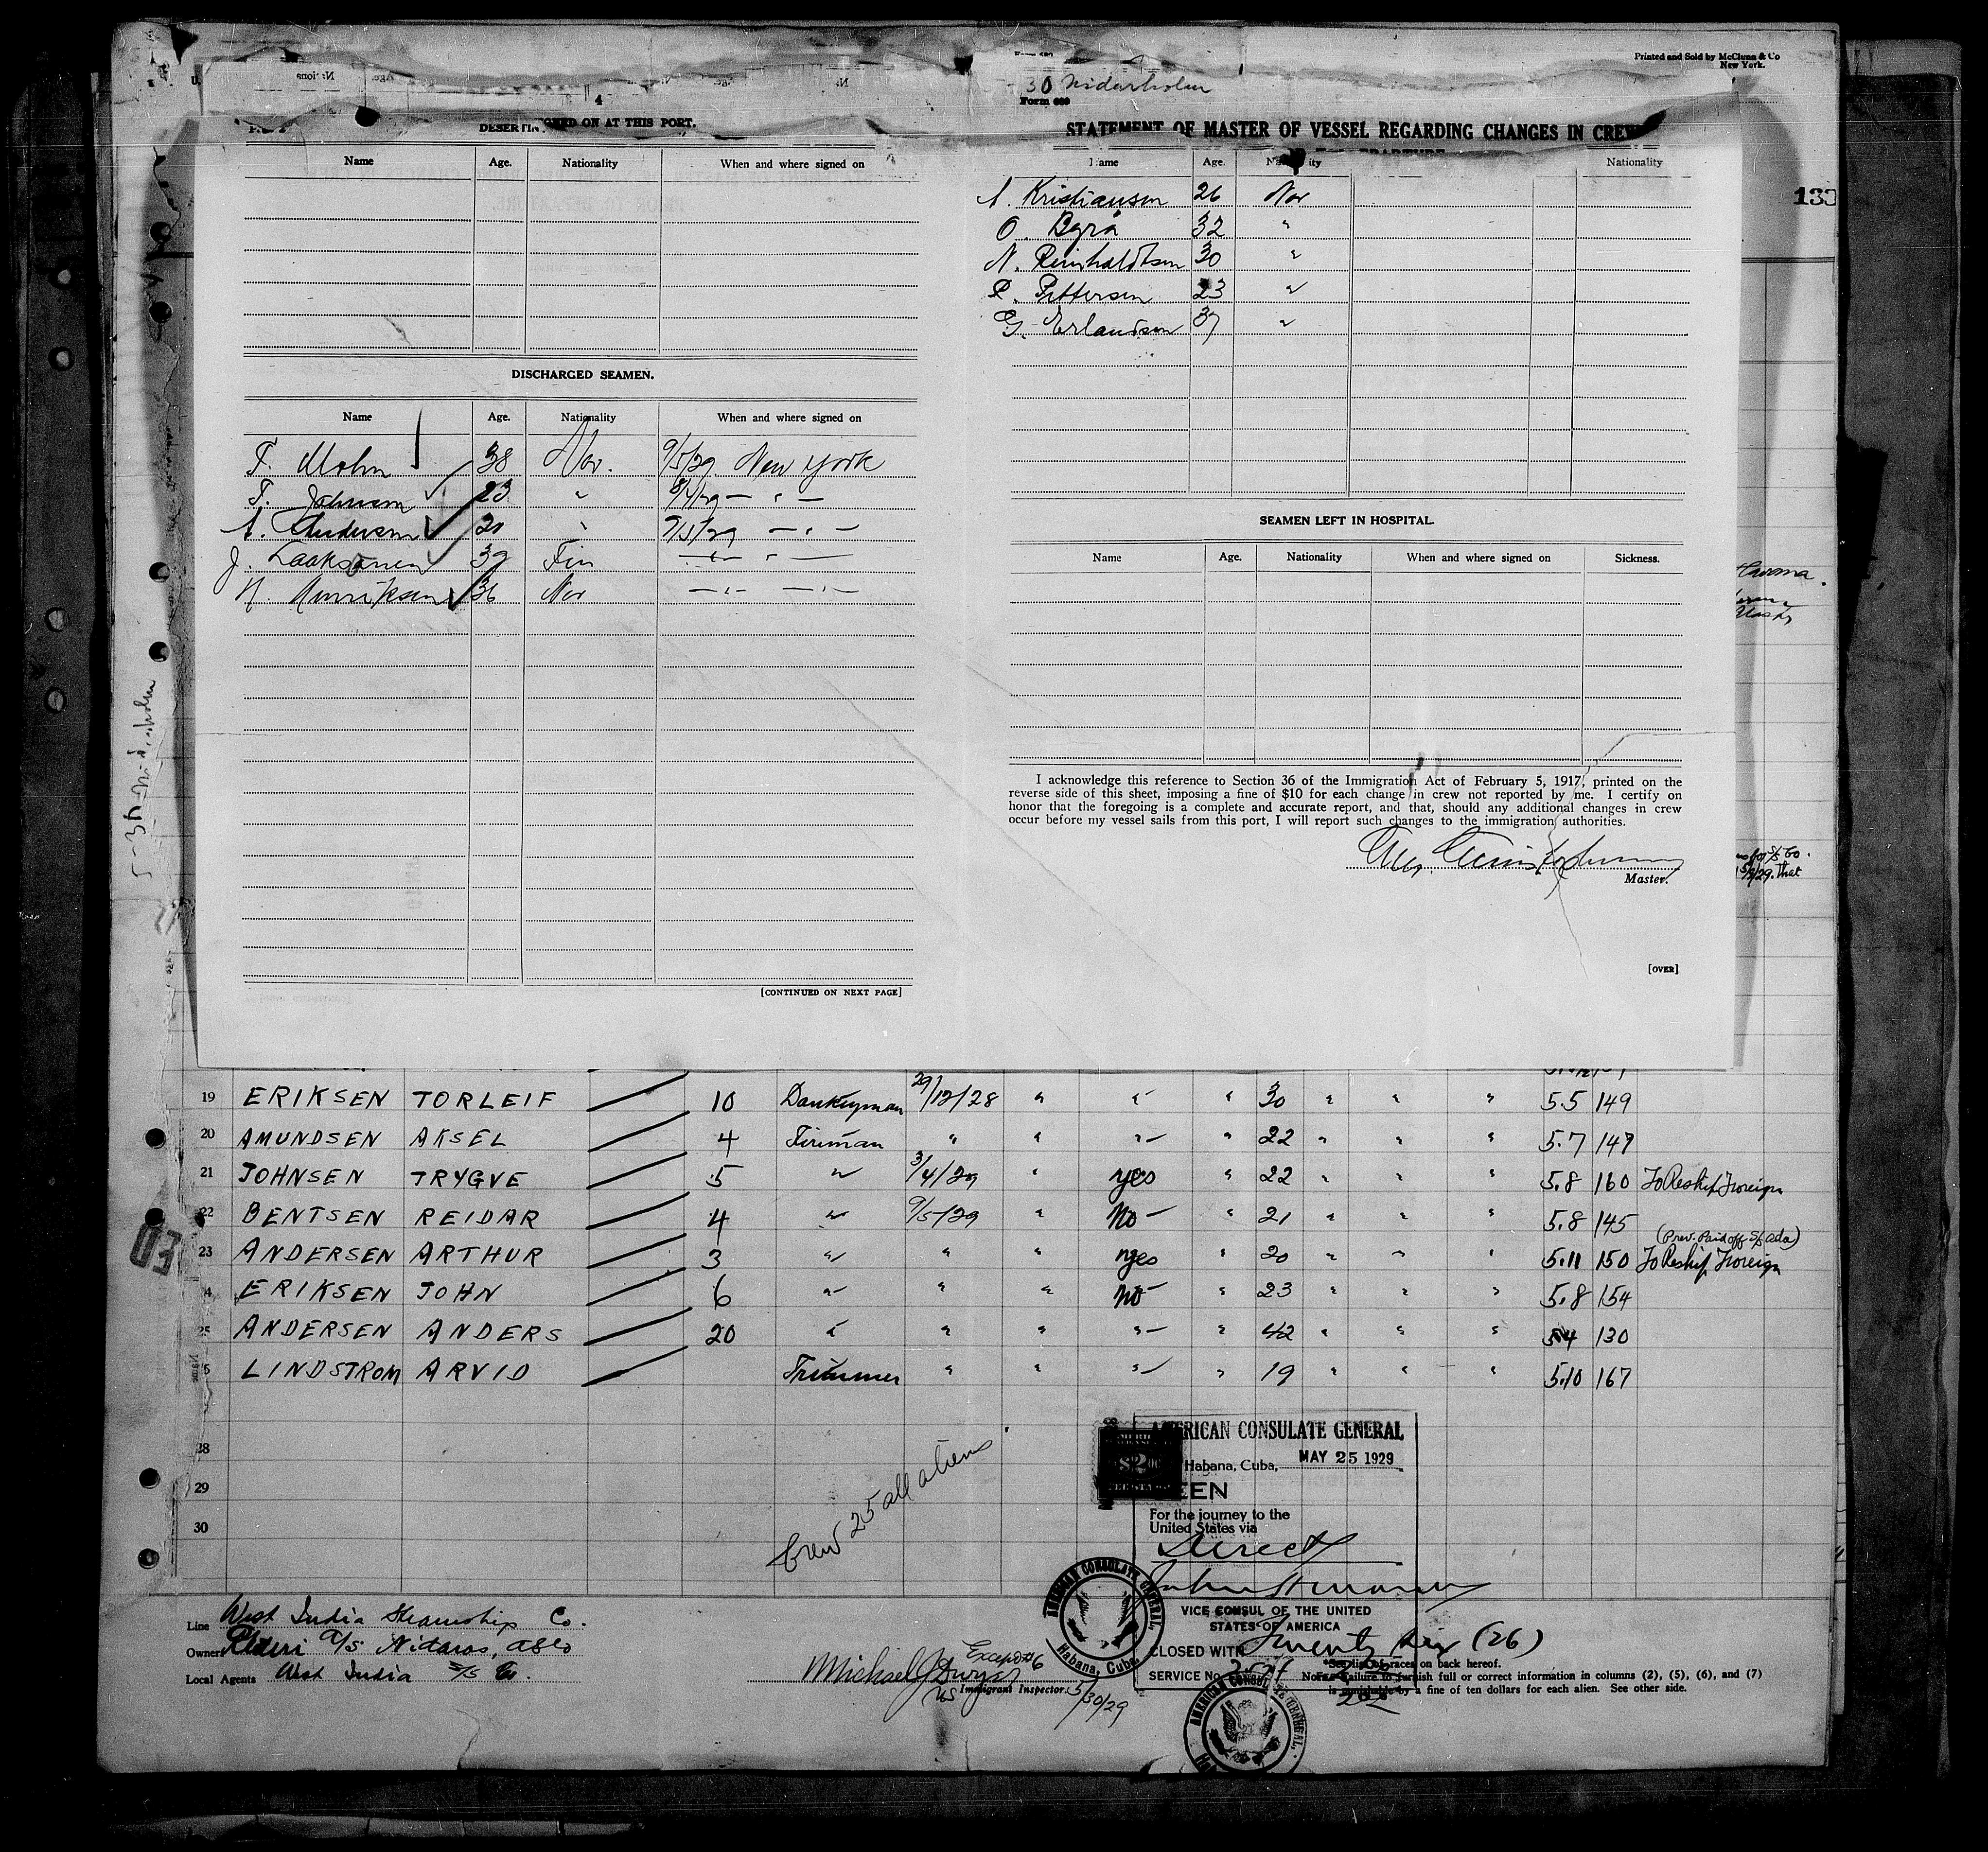 Printed and Sold by McClunn & Co
New York.
30 Nidarholm
Form 689
4
SIGNED ON AT THIS PORT.
Name Age. Nationality When and where signed on
DISCHARGED SEAMEN.
Name Age. Nationality When and where signed on
T. Mohn 38 Nor. 9/5/29 New York
T. Johnsen 23 " 3/4/29 — " —
A. Andersen 20 " 9/5/29 — " —
J. Laaksonen 39 Fin — " — " —
H. Henriksen 36 Nor — " — — " —
[CONTINUED ON NEXT PAGE]
STATEMENT OF MASTER OF VESSEL REGARDING CHANGES IN CREW
Name Age. Nationality Nationality
A. Kristiansen 26 Nor
O. Byrå 32 "
N. Reinholdtsen 30 "
R. Pettersen 23 "
G. Erlandsen 37 "
SEAMEN LEFT IN HOSPITAL.
Name Age. Nationality When and where signed on Sickness.
I acknowledge this reference to Section 36 of the Immigration Act of February 5, 1917, printed on the
reverse side of this sheet, imposing a fine of $10 for each change in crew not reported by me. I certify on
honor that the foregoing is a complete and accurate report, and that, should any additional changes in crew
occur before my vessel sails from this port, I will report such changes to the immigration authorities.
Master.
[OVER]
133
5-30 Nidarholm
19 ERIKSEN TORLEIF 10 Donkeyman 29/12/28 " " " 30 " " " 5.5 149
20 AMUNDSEN AKSEL 4 Fireman " " " " 22 " " " 5.7 147
21 JOHNSEN TRYGVE 5 " 3/4/29 " yes " 22 " " " 5.8 160 To Reship Foreign
22 BENTSEN REIDAR 4 " 9/5/29 " No " 21 " " " 5.8 145
(Prev. Paid off S/S Ada)
23 ANDERSEN ARTHUR 3 " " " yes " 20 " " " 5.11 150 To Reship Foreign
24 ERIKSEN JOHN 6 " " " No " 23 " " " 5.8 154
25 ANDERSEN ANDERS 20 " " " " " 42 " " " 5.4 130
LINDSTROM ARVID Trimmer " " " " 19 " " " 5.10 167
28
29
30
Crew 25 all aliens
AMERICAN CONSULATE GENERAL
Habana, Cuba, MAY 25 1929
SEEN
For the journey to the
United States via
Direct
VICE CONSUL OF THE UNITED
STATES OF AMERICA
CLOSED WITH Twenty Six (26)
SERVICE No.
AMERICAN CONSULATE GENERAL, Habana, Cuba
AMERICAN CONSULATE GENERAL.
Line West India Steamship Co.
Owners Rederi A/S Nidaros, Oslo
Local Agents West India S/S Co.
Except #6
Michael J Dwyer
US Immigrant Inspector. 5/30/29
*See list of races on back hereof.
Note.—Failure to furnish full or correct information in columns (2), (5), (6), and (7)
is punishable by a fine of ten dollars for each alien. See other side.